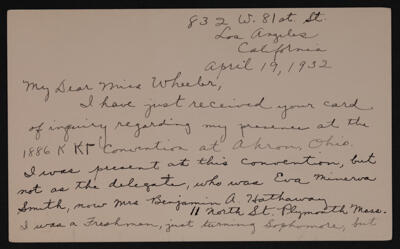 832 W. 81st. St.
Los Angeles
California
April 19, 1932
My Dear Miss Wheeler,
I have just received your card
of inquiry regarding my presence at the
1886 K K Γ Convention at Akron, Ohio.
I was present at this convention, but
not as the delegate, who was Eva Minerva
Smith, now Mrs Benjamin A. Hathaway
11 North St. Plymouth Mass.
I was a Freshman, just turning Sophomore, but